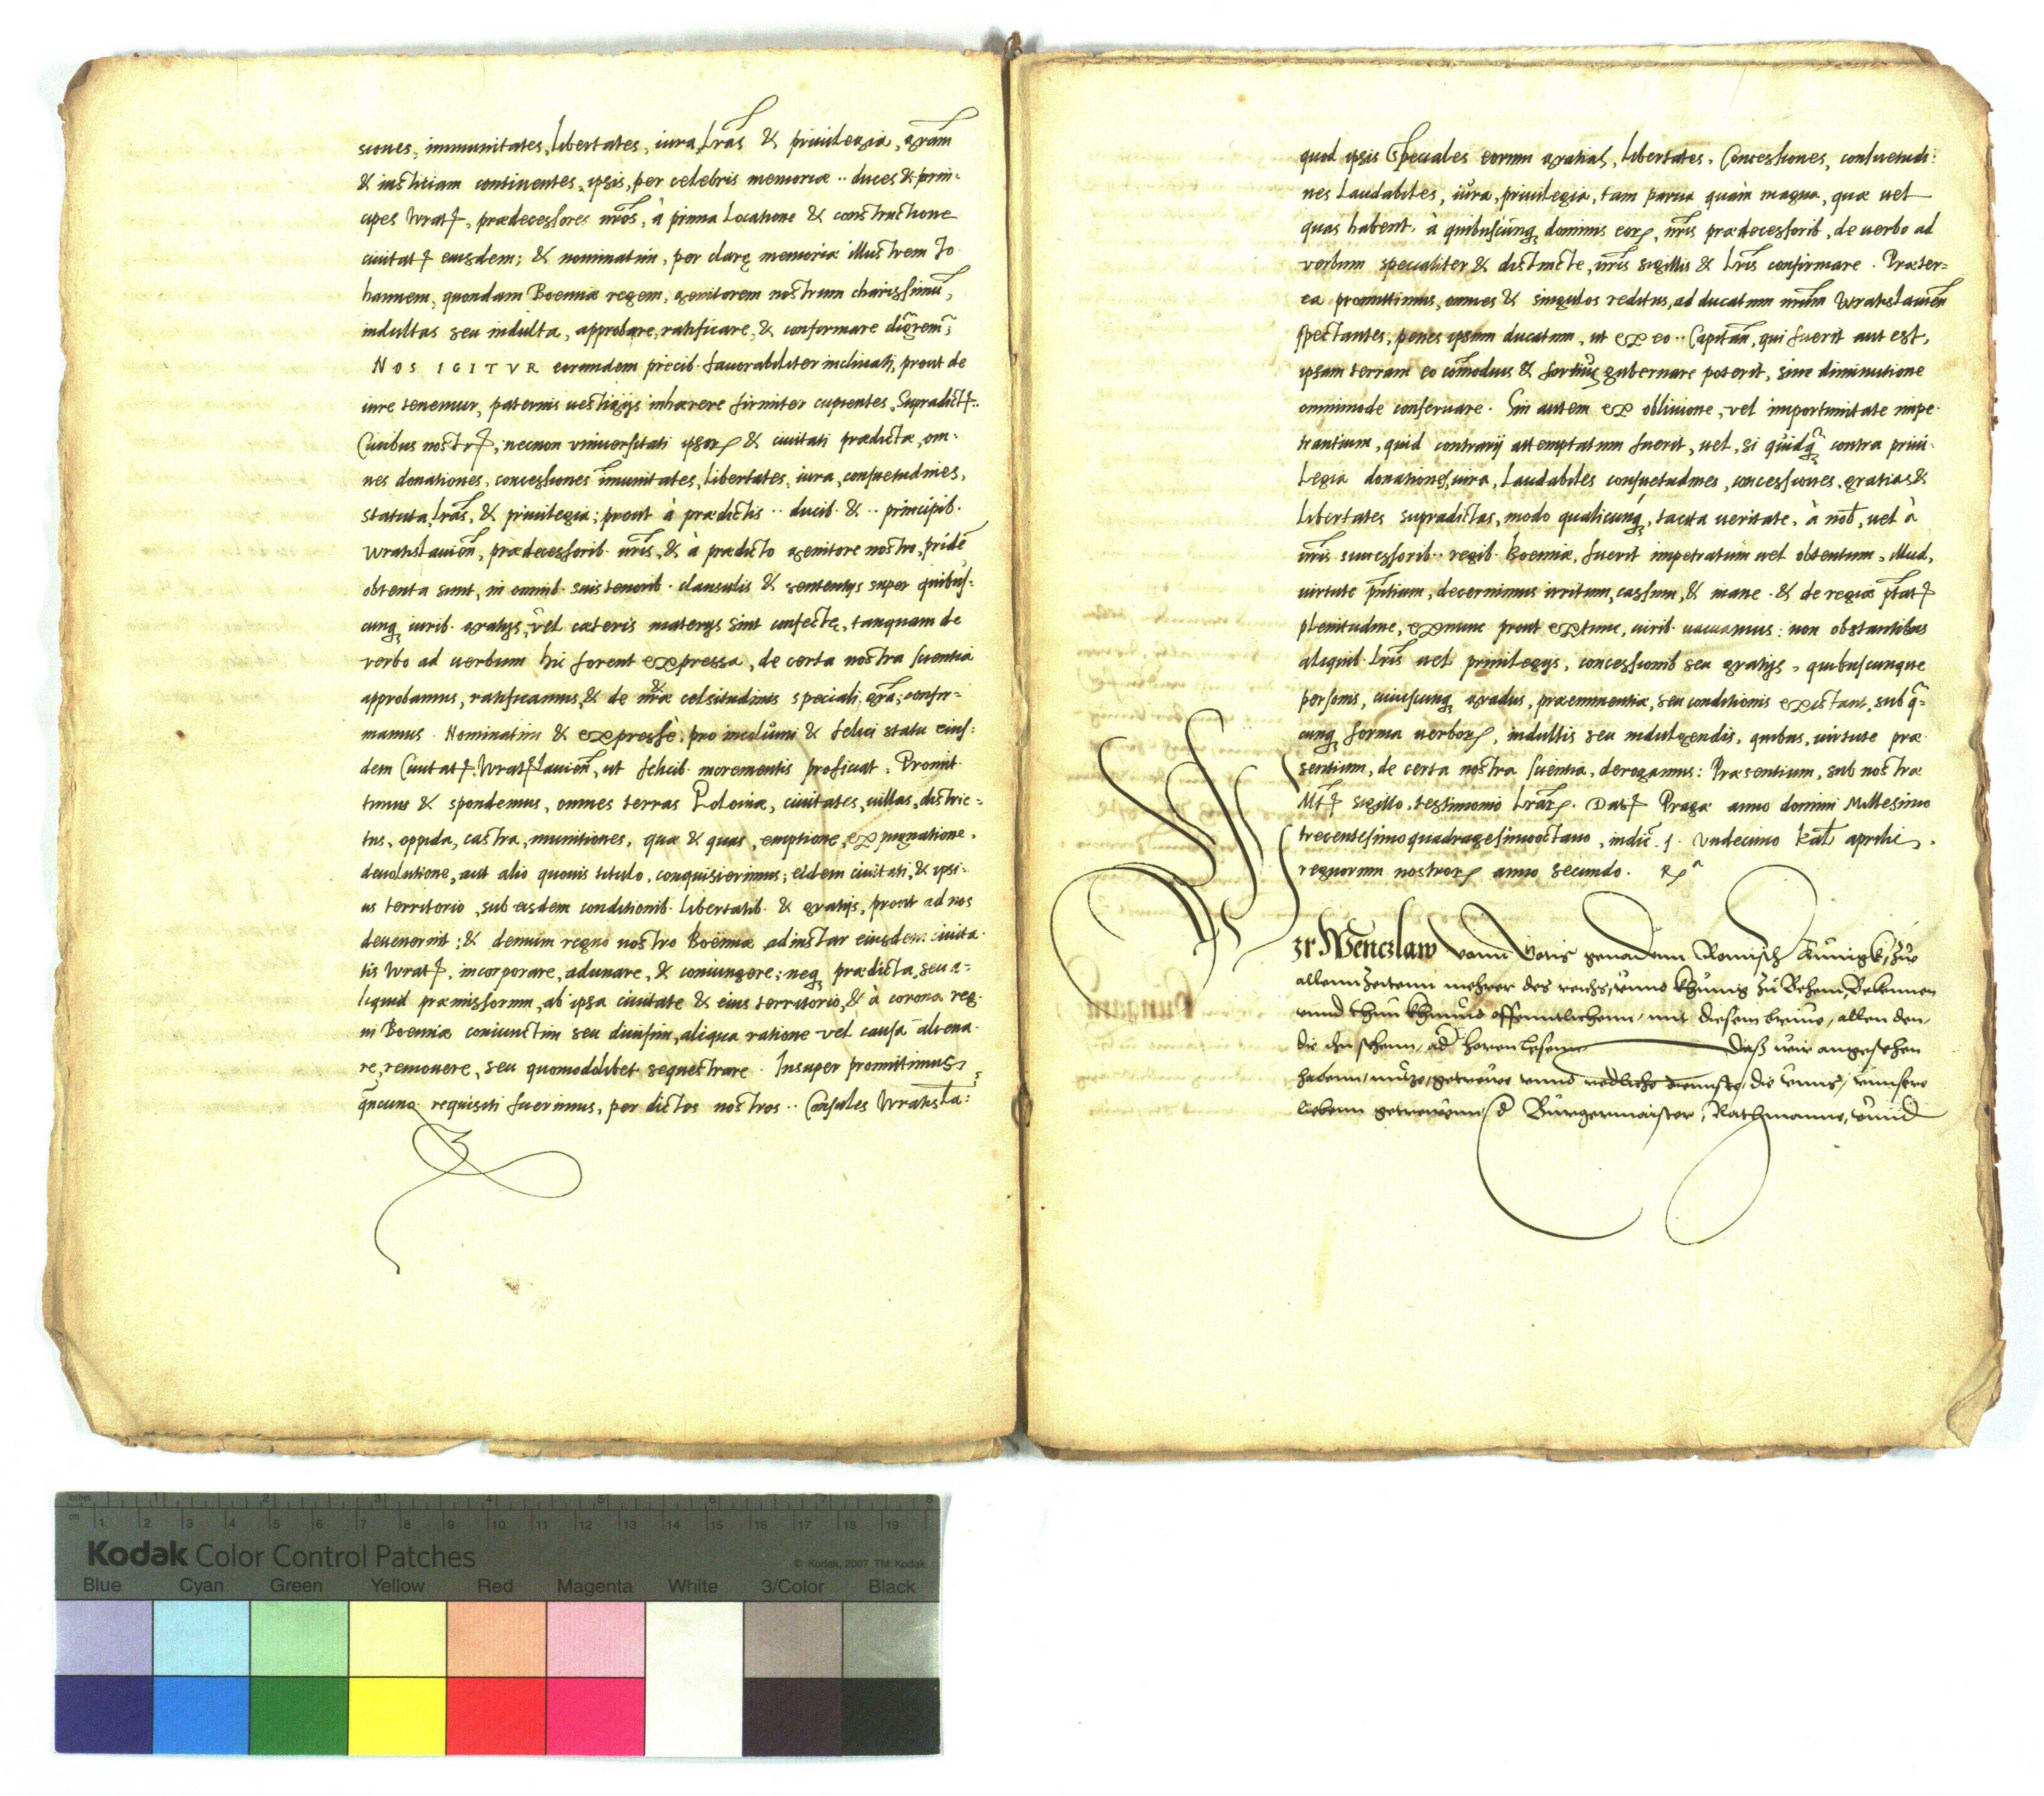 siones, immunitates, libertates, iura, lr̃as & priuilegia, gr̃am
& iustitiam continentes, ipsis, per celebris memoriæ ·· duces & prin-
cipes Wratꝭ, prædecessores nr̃os, à prima locatione & constructione
ciuitatꝭ eiusdem; & nominatim, per clarę memoriæ illustrem Jo
hannem, quondam Boemiæ regem, genitorem nostrum charissimũ,
indultas seu indulta, approbare, ratificare, & confirmare dig̃rem̃;
NOS IGITVR eorundem precib. fauorabiliter inclinati, prout de
iure tenemur, paternis uestigijs inhærere firmiter cupientes, supradictꝭ··
Ciuibus nostrꝭ, necnon vniuersitati ipsoꝝ & ciuitati prædictæ, om-
nes donationes, concessiones im̃unitates, libertates, iura, consuetudines,
statuta, lr̃as, & priuilegia; prout à prædictis ·· ducib. & ·· principib.
Wratislauieñ, prædecessorib. nr̃is, & à prædicto genitore nostro, pridē
obtenta sunt, in omnib. suis tenorib. clausulis & sententijs super quibus-
cunqꝫ iurib. gratijs, vel cæteris materijs sint confectę, tanquam de
verbo ad uerbum hic forent expressa, de certa nostra scientia
approbamus, ratificamus, & de nr̃æ celsitudinis speciali gr̃a; confir-
mamus. Nominatim & expressè, pro incolumi & felici statu eius-
dem Ciuitatꝭ Wratꝭlauieñ, ut felicib. incrementis proficiat. Promit
timus & spondemus, omnes terras Poloniæ, ciuitates, uillas, distric-
tus, oppida, castra, munitiones, quæ & quas, emptione, expugnatione,
deuolutione, aut alio quouis titulo, conquisierimus; eidem ciuitati, & ipsi-
us territorio, sub eisdem conditionib. libertatib. & gratijs, prout ad nos
deuenerint; & demum regno nostro Boëmiæ ad instar eiusdem ciuita-
tis Wratꝭ, incorporare, adunare, & coniungere; neqꝫ prædicta, seu a-
liquid præmissorum, ab ipsa ciuitate & eius territorio, & à corona reg-
ni Boemiæ coniunctim seu diuisim, aliqua ratione vel causa aliena-
re, remouere, seu quomodolibet sequestrare. Insuper promittimus,
qñcunqꝫ requisiti fuerimus, per dictos nostros ·· Consules Wratisla:
quod ipsis speciales eorum gratias, libertates, Concessiones, consuetudi:
nes laudabiles, iura, priuilegia, tam parua quàm magna, quæ uel
quas habent, à quibuscunqꝫ dominis eoꝝ, nr̃is prædecessorib, de uerbo ad
verbum specialiter & distincte, nr̃is sigillis & lr̃is confirmare. Præter-
ea promittimus, omnes & singulos reditus, ad ducatum nr̃um Wratislauieñ
spectantes, penes ipsum ducatum, ut ex eo ·· Capitañ, qui fuerit aut est,
ipsam terram eo com̃odius & fortius gubernare poterit, sine diminutione
omnimode conseruare. Sin autem ex obliuione, vel importunitate impe-
trantium, quid contrarij attemptatum fuerit, uel, si quidq̃ contra priui-
legia donationes, iura, laudabiles consuetudines, concessiones, gratias &
libertates supradictas, modo qualicunqꝫ, tacita ueritate, à nob̃, uel à
nr̃is successorib·· regib. Boemiæ, fuerit impetratum uel obtentum, illud,
uirtute p̃ntium, decernimus irritum, cassum, & inane. & de regiæ p̃tatꝭ
plenitudine, exnunc prout extunc, uirib. uacuamus: non obstantibus
aliquib. lr̃is uel priuilegijs, concessionib seu gratijs, quibuscunque
personis, cuiuscunqꝫ gradus, præeminentiæ, seu conditionis existant, sub q̃-
cunqꝫ forma uerboꝝ, indultis seu indulgendis, quibus, uirtute præ-
sentium, de certa nostra scientia, derogamus: Præsentium, sub nostræ
Mtꝭ sigillo, testimonio lr̃aꝝ. Datꝭ Pragæ anno domini Millesimo
trecentesimoquadragesimooctauo, indic̃. 1. vndecimo kal̃ aprilis,
regnorum nostroꝝ anno secundo. Rᵃ
Wir Wenczlaw vonn Gotis genadenn Romisch Kunigk, zue
allenn Zeitenn mehrer des reichs, vnnd khunig zu Behem, Bekennen
vnnd thun khunnd offenntlichenn, mit diesem brieue, allen den,
die ihn sehenn, ad̃ horen lesenn Daß wir angesehen
habenn, nutze, getreue vnnd redliche dennste, die vnns, vnnsere
liebenn getreuenn, d Burgermaister, Rathmanne, vnnd